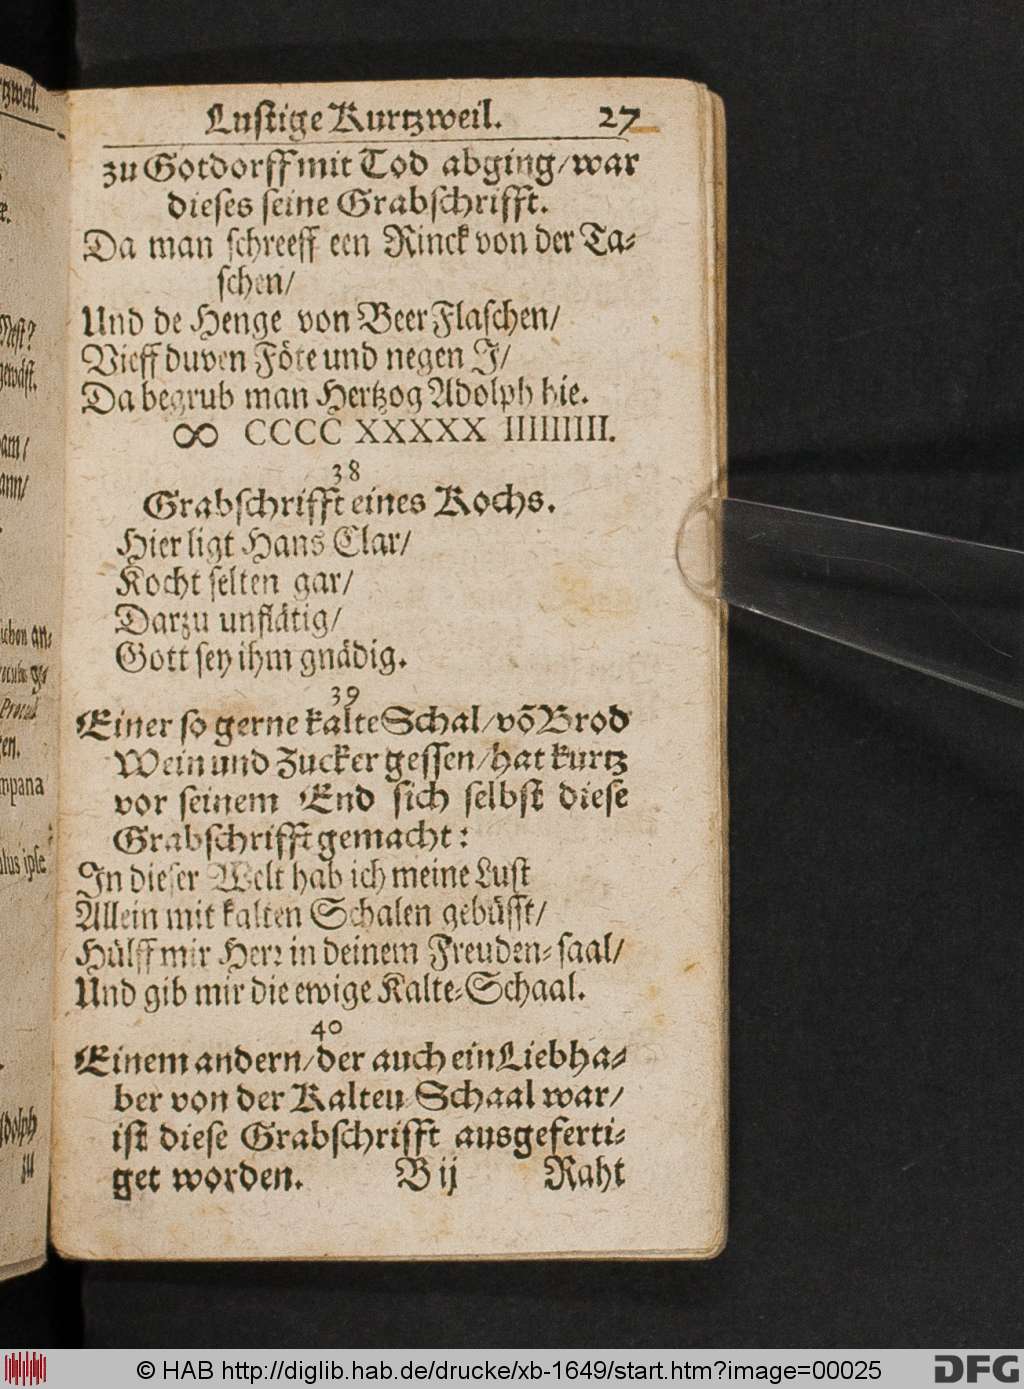 Lustige Kurtzweil. 27
zu Gotdorff mit Tod abging/ war
dieses seine Grabschrifft.
Da man schreeff een Rinck von der Ta-
schen/
Und de Henge von Beer Flaschen/
Vieff duven Föte und negen J/
Da begrub man Hertzog Adolph hie.
∞ CCCC XXXXX IIIIIIIII.
38
Grabschrifft eines Kochs.
Hier ligt Hans Clar/
Kocht selten gar/
Darzu unflätig/
Gott sey ihm gnädig.
39
Einer so gerne kalte Schal/ võ Brod
Wein und Zucker gessen/ hat kurtz
vor seinem End sich selbst diese
Grabschrifft gemacht:
In dieser Welt hab ich meine Lust
Allein mit kalten Schalen gebüsst/
Hülff mir Herr in deinem Freuden-saal/
Und gib mir die ewige Kalte-Schaal.
40
Einem andern/ der auch ein Liebha-
ber von der Kalten Schaal war/
ist diese Grabschrifft ausgeferti-
get worden. B ij Raht
© HAB http://diglib.hab.de/drucke/xb-1649/start.htm?image=00025
DFG